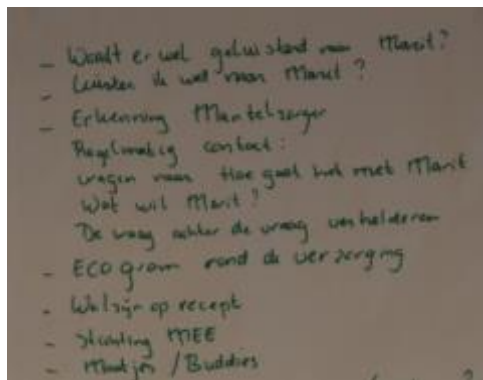 - Wordt er wel geluisterd naar Marit?
- Luister ik wel naar Marit?
- Erkenning Mantelzorger
Regelmatig contact:
vragen naar Hoe gaat het met Marit
Wat wil Marit?
De vraag achter de vraag verhelderen
- ECOgram rond de verzorging
- Welzijn op recept
- Stichting MEE
- Maatjes / Buddies
?